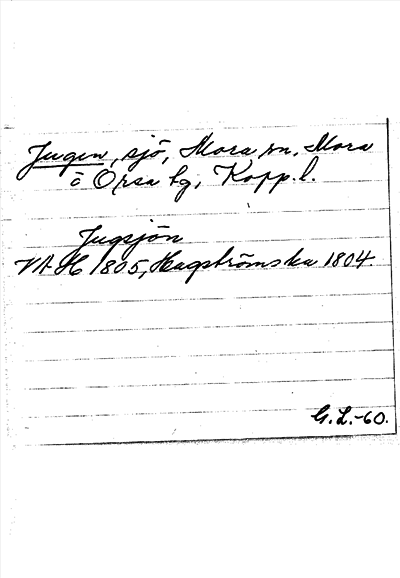 Jugen, sjö, Mora sn, Mora
o Orsa tg, Kopp. l.
Jugsjön
1805, Hagströmska 1804.
G. L. -60.